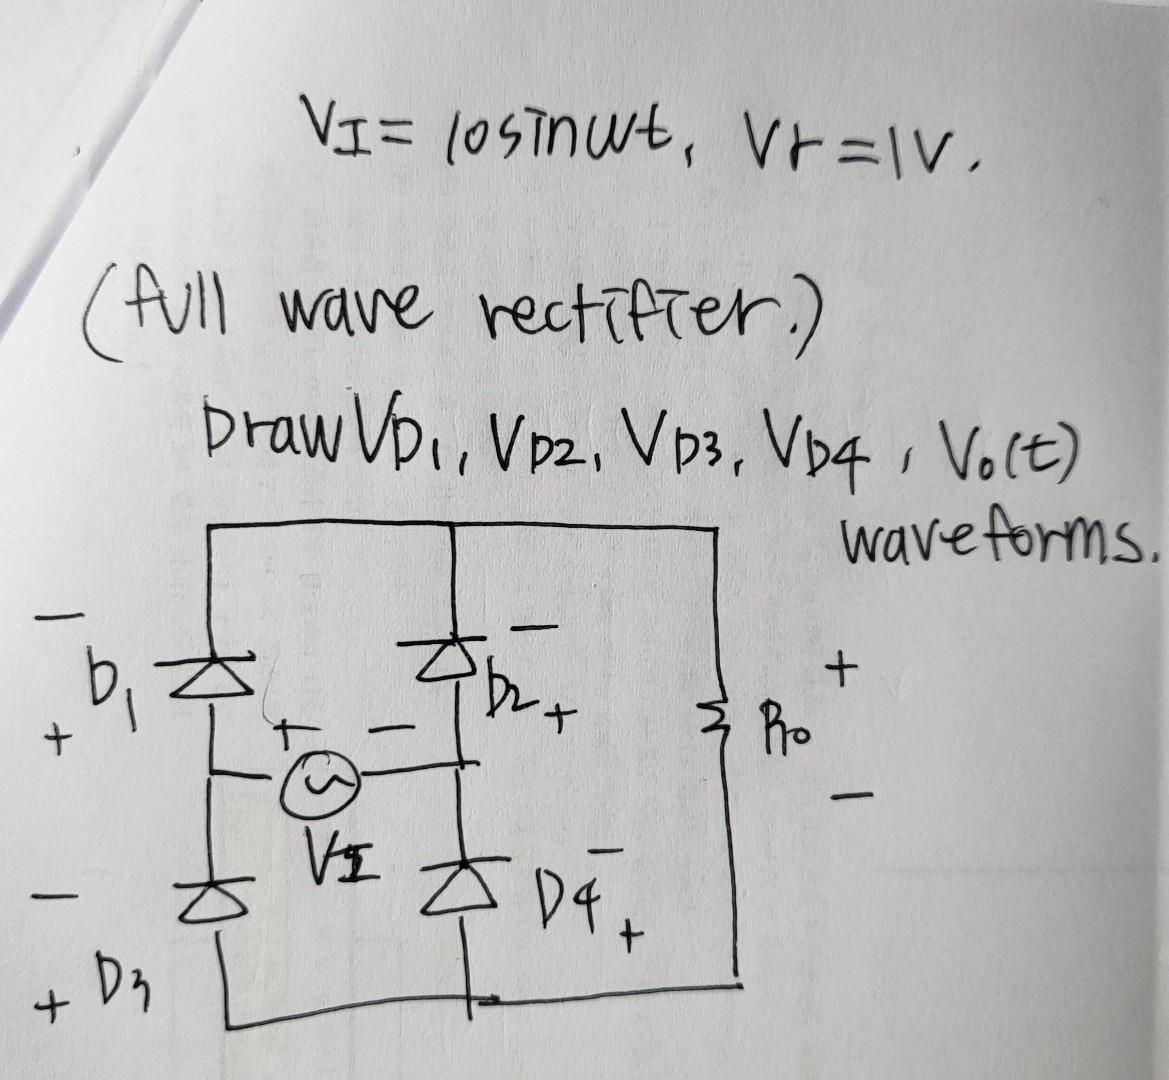 VI = 10sinwt, Vr = 1V.
(full wave rectifier.)
Draw VD1, VD2, VD3, VD4, Vo(t)
waveforms.
− −
D1 D2
+ + − + +
Ro
VI −
− −
D4
+ D3 +